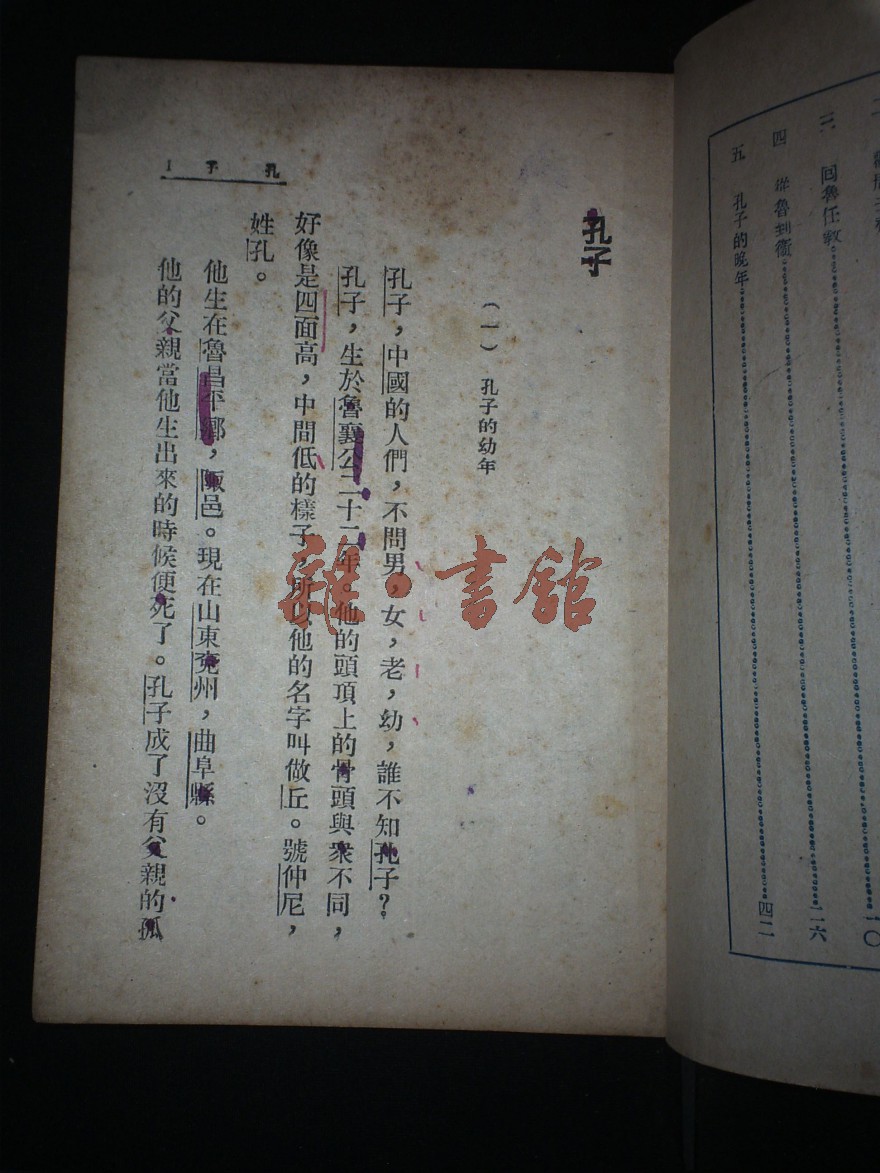 三 回魯任教……二六
四 從魯到衞……二六
五 孔子的晚年……四二
孔子 1
孔子
(一) 孔子的幼年
孔子,中國的人們,不問男,女,老,幼,誰不知孔子?
孔子,生於魯襄公二十二年。他的頭頂上的骨頭與衆不同,
好像是四面高,中間低的樣子,所以他的名字叫做丘。號仲尼,
姓孔。
他生在魯昌平鄉,陬邑。現在山東兗州,曲阜縣。
他的父親當他生出來的時候便死了。孔子成了沒有父親的孤
雜·書館